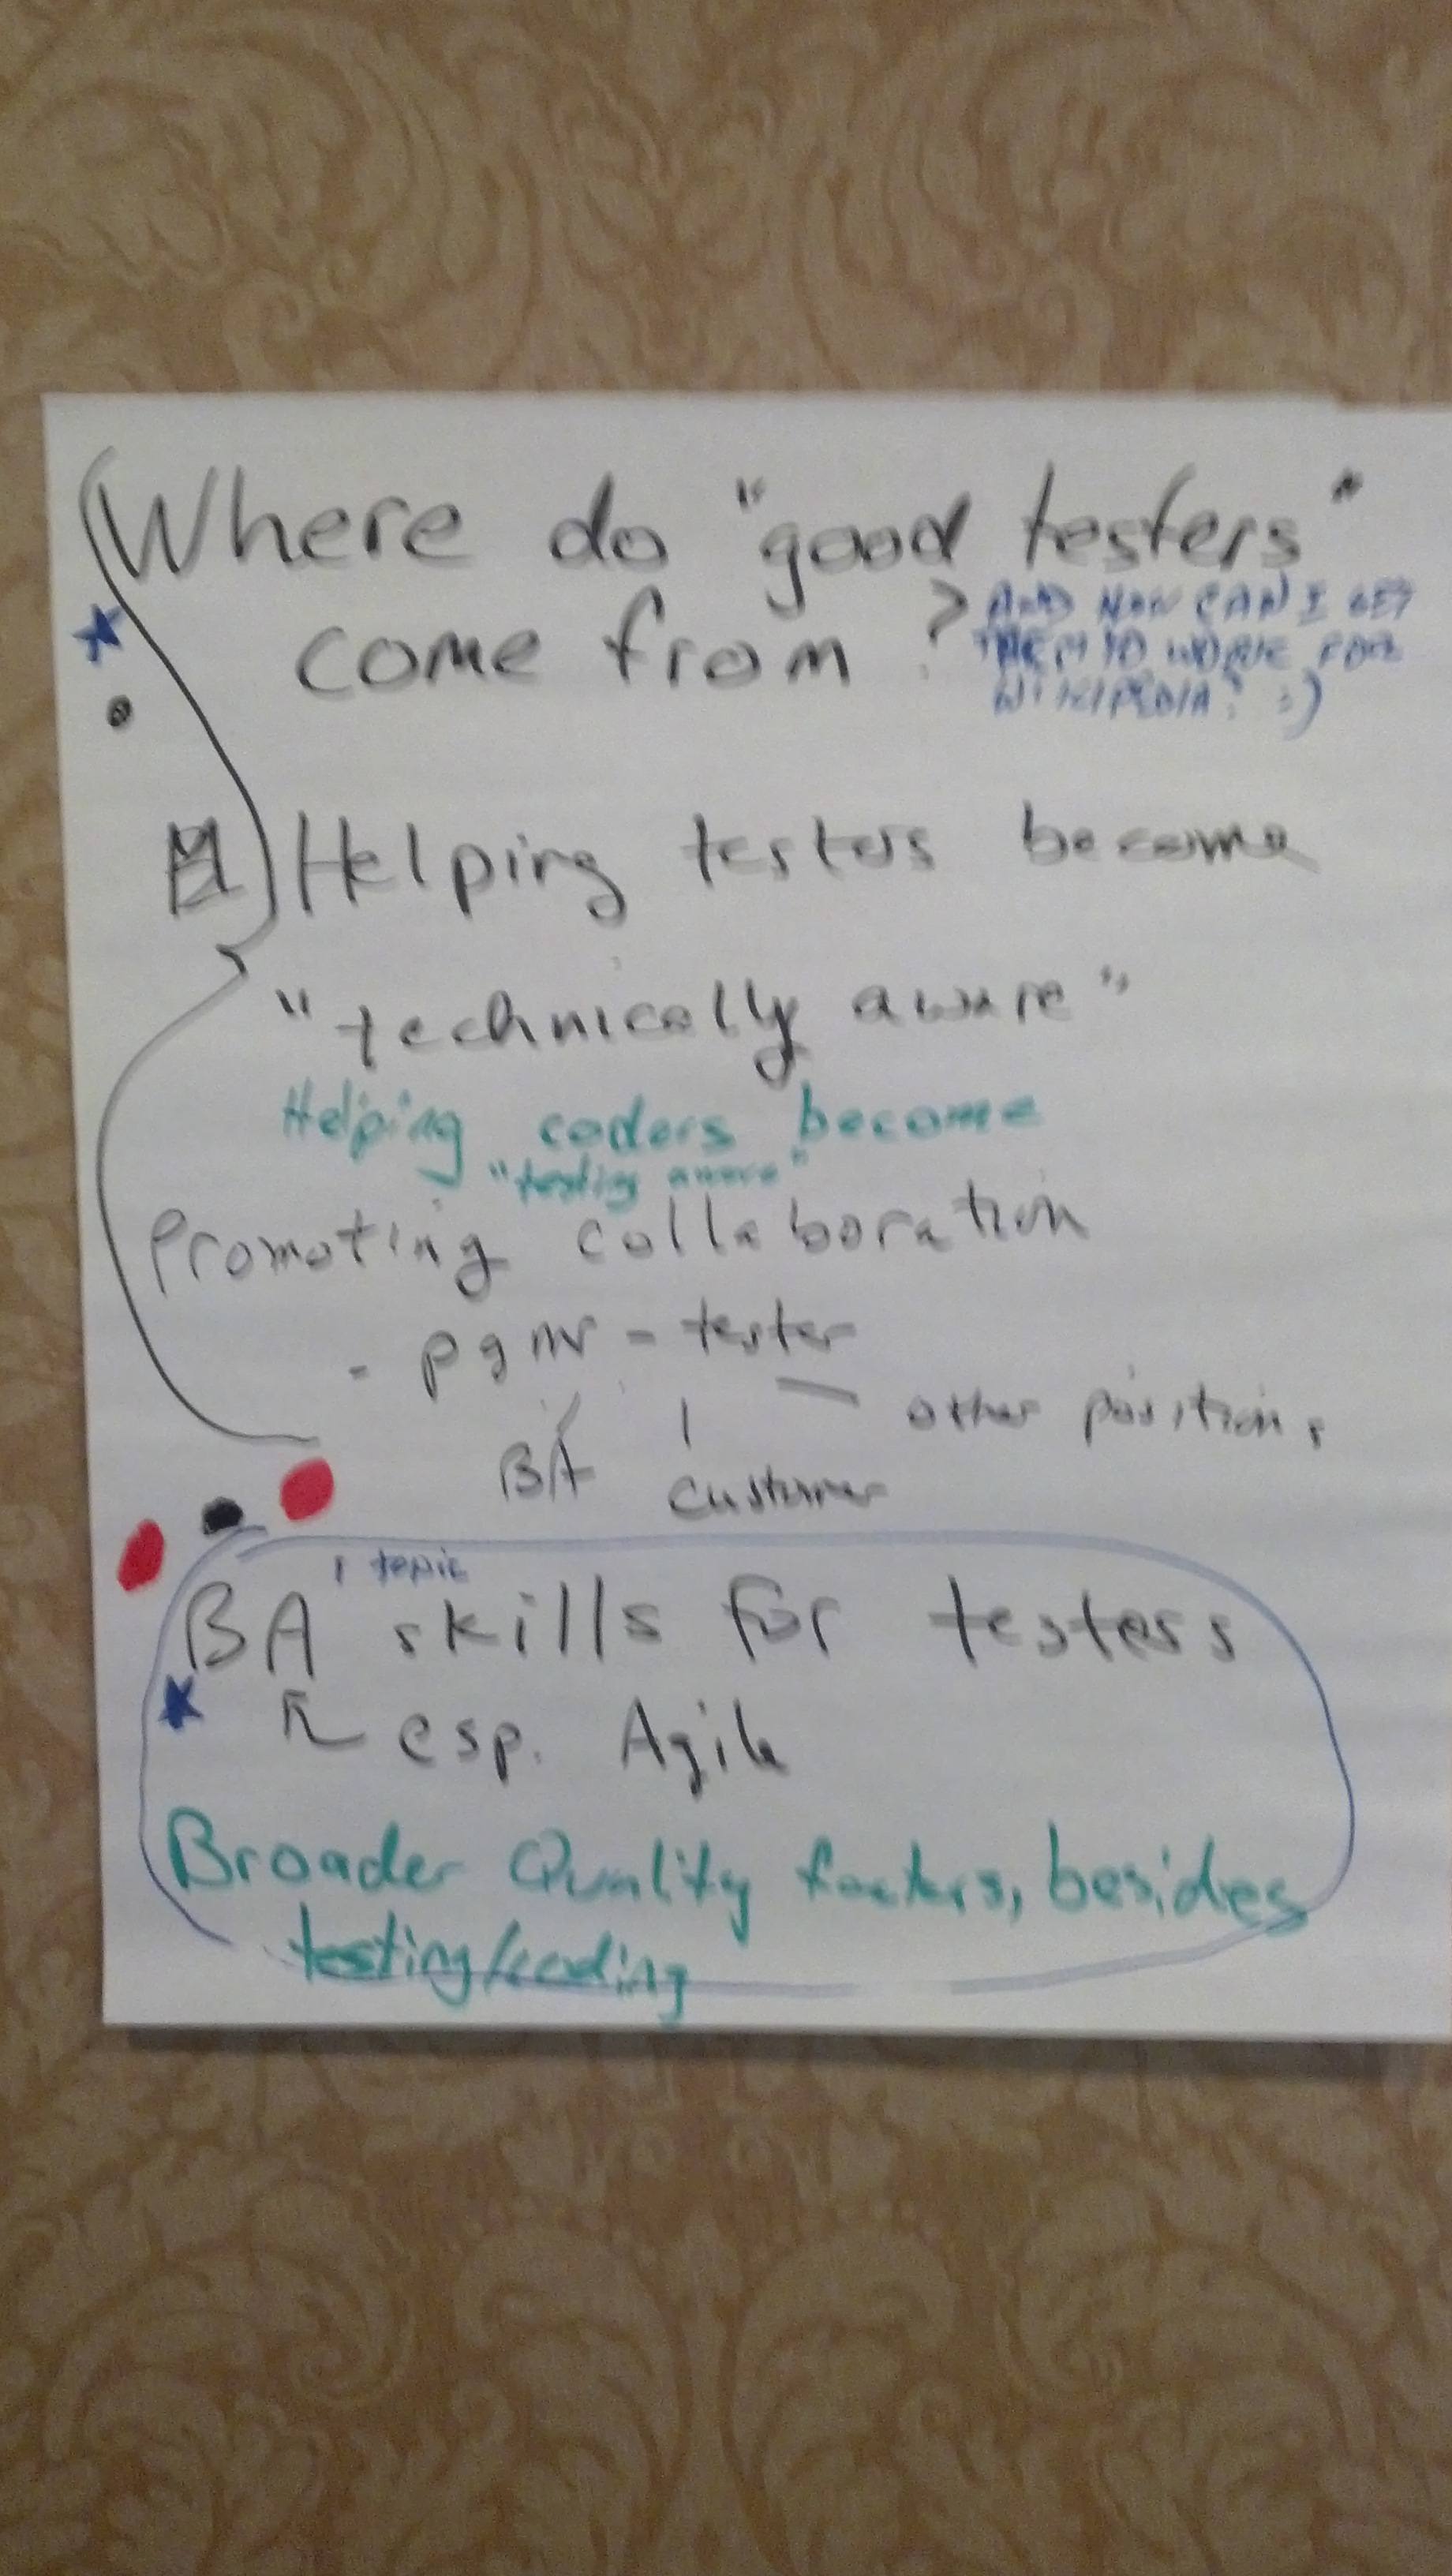 Where do "good testers"
come from ?
AND HOW CAN I GET
THEM TO WORK FOR
WIKIPEDIA? :)
Helping testers become
"technically aware"
Helping coders become
"testing aware"
Promoting collaboration
- pgmr - tester
other positions
BA customer
1 topic
BA skills for testers
esp. Agile
Broader Quality factors, besides
testing/coding